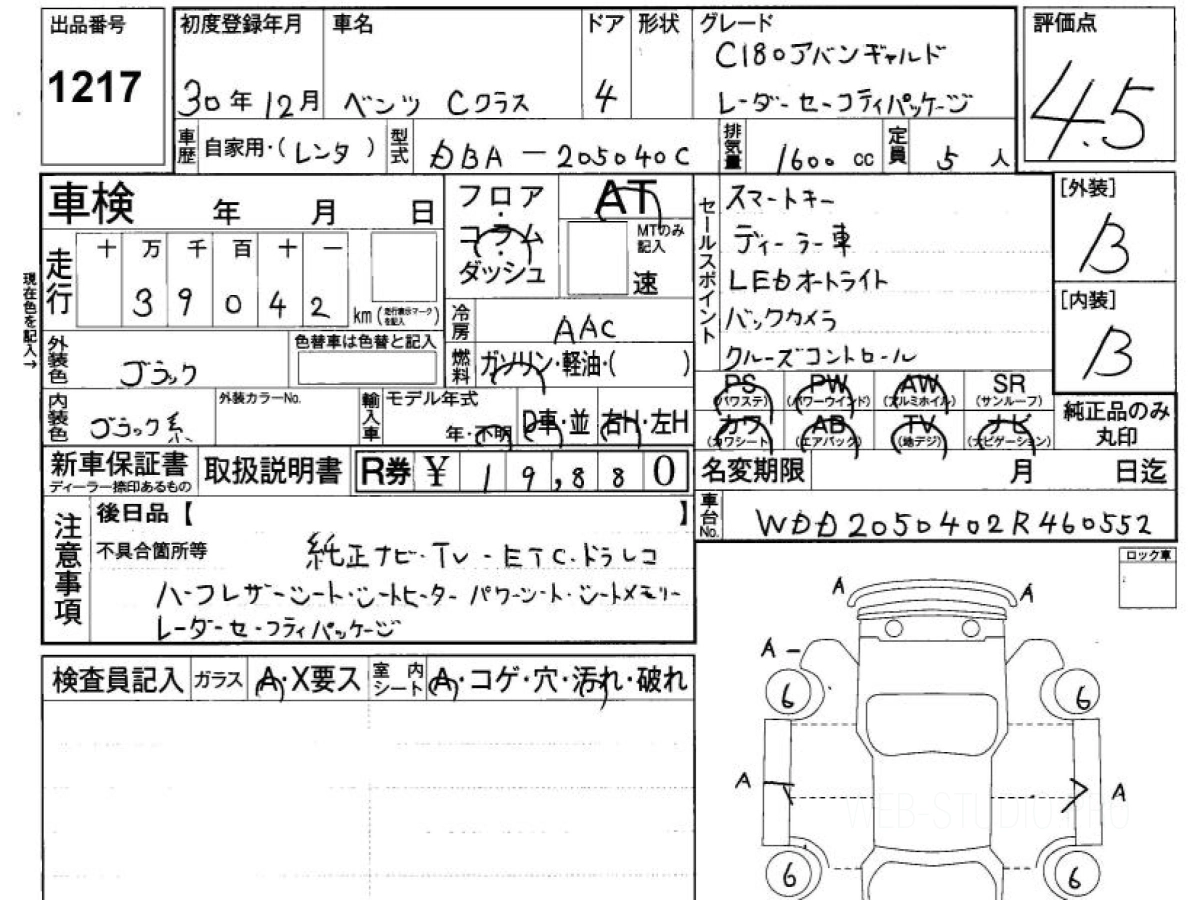 出品番号
1217
初度登録年月
30年12月
車名
ベンツ Cクラス
ドア
4
形状
グレード
C180アバンギャルド
レーダーセーフティパッケージ
評価点
4.5
車歴 自家用・(レンタ)
型式 DBA-205040C
排気量 1600cc
定員 5人
車検 年 月 日
フロア・コラム・ダッシュ
AT
MTのみ記入
速
セールスポイント
スマートキー
ディーラー車
LEDオートライト
バックカメラ
クルーズコントロール
[外装]
B
[内装]
B
現在色を記入→
走行
十 万 千 百 十 一
3 9 0 4 2
km(走行表示マークを記入)
冷房 AAC
外装色 ブラック
色替車は色替と記入
燃料 ガソリン・軽油・( )
内装色 ブラック系
外装カラーNo.
輸入車
モデル年式
年・不明
D車・並
右H・左H
PS
(パワステ)
PW
(パワーウインド)
AW
(アルミホイル)
SR
(サンルーフ)
カワ
(カワシート)
AB
(エアバック)
TV
(地デジ)
ナビ
(ナビゲーション)
純正品のみ
丸印
新車保証書
ディーラー捺印あるもの
取扱説明書
R券 ¥ 19,880
名変期限 月 日迄
車台No. WDD2050402R460552
注意事項
後日品【 】
不具合箇所等
純正ナビ・TV・ETC・ドラレコ
ハーフレザーシート・シートヒーター パワーシート・シートメモリー
レーダーセーフティパッケージ
ロック車
検査員記入 ガラス A・X要ス 室内シート A・コゲ・穴・汚れ・破れ
A
A
A
6
6
A
A
6
6
WEB-STUDIO.PRO